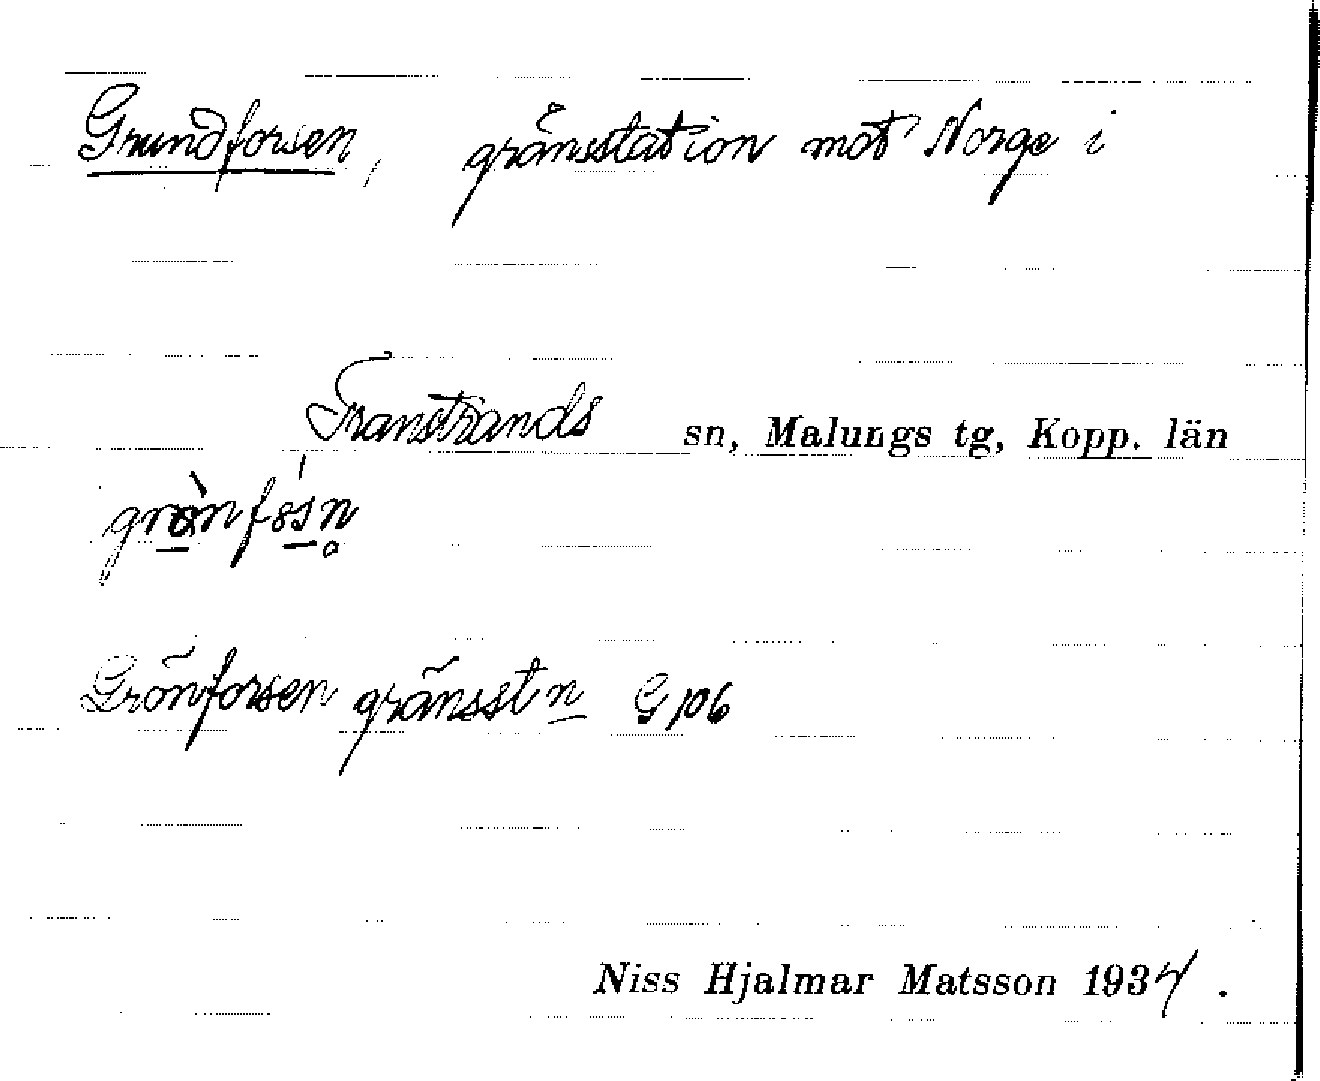 Grundforsen, gränsstation mot Norge i
Transtrands sn, Malungs tg, Kopp. län
Grönforsen gränsstn G 106
Niss Hjalmar Matsson 193